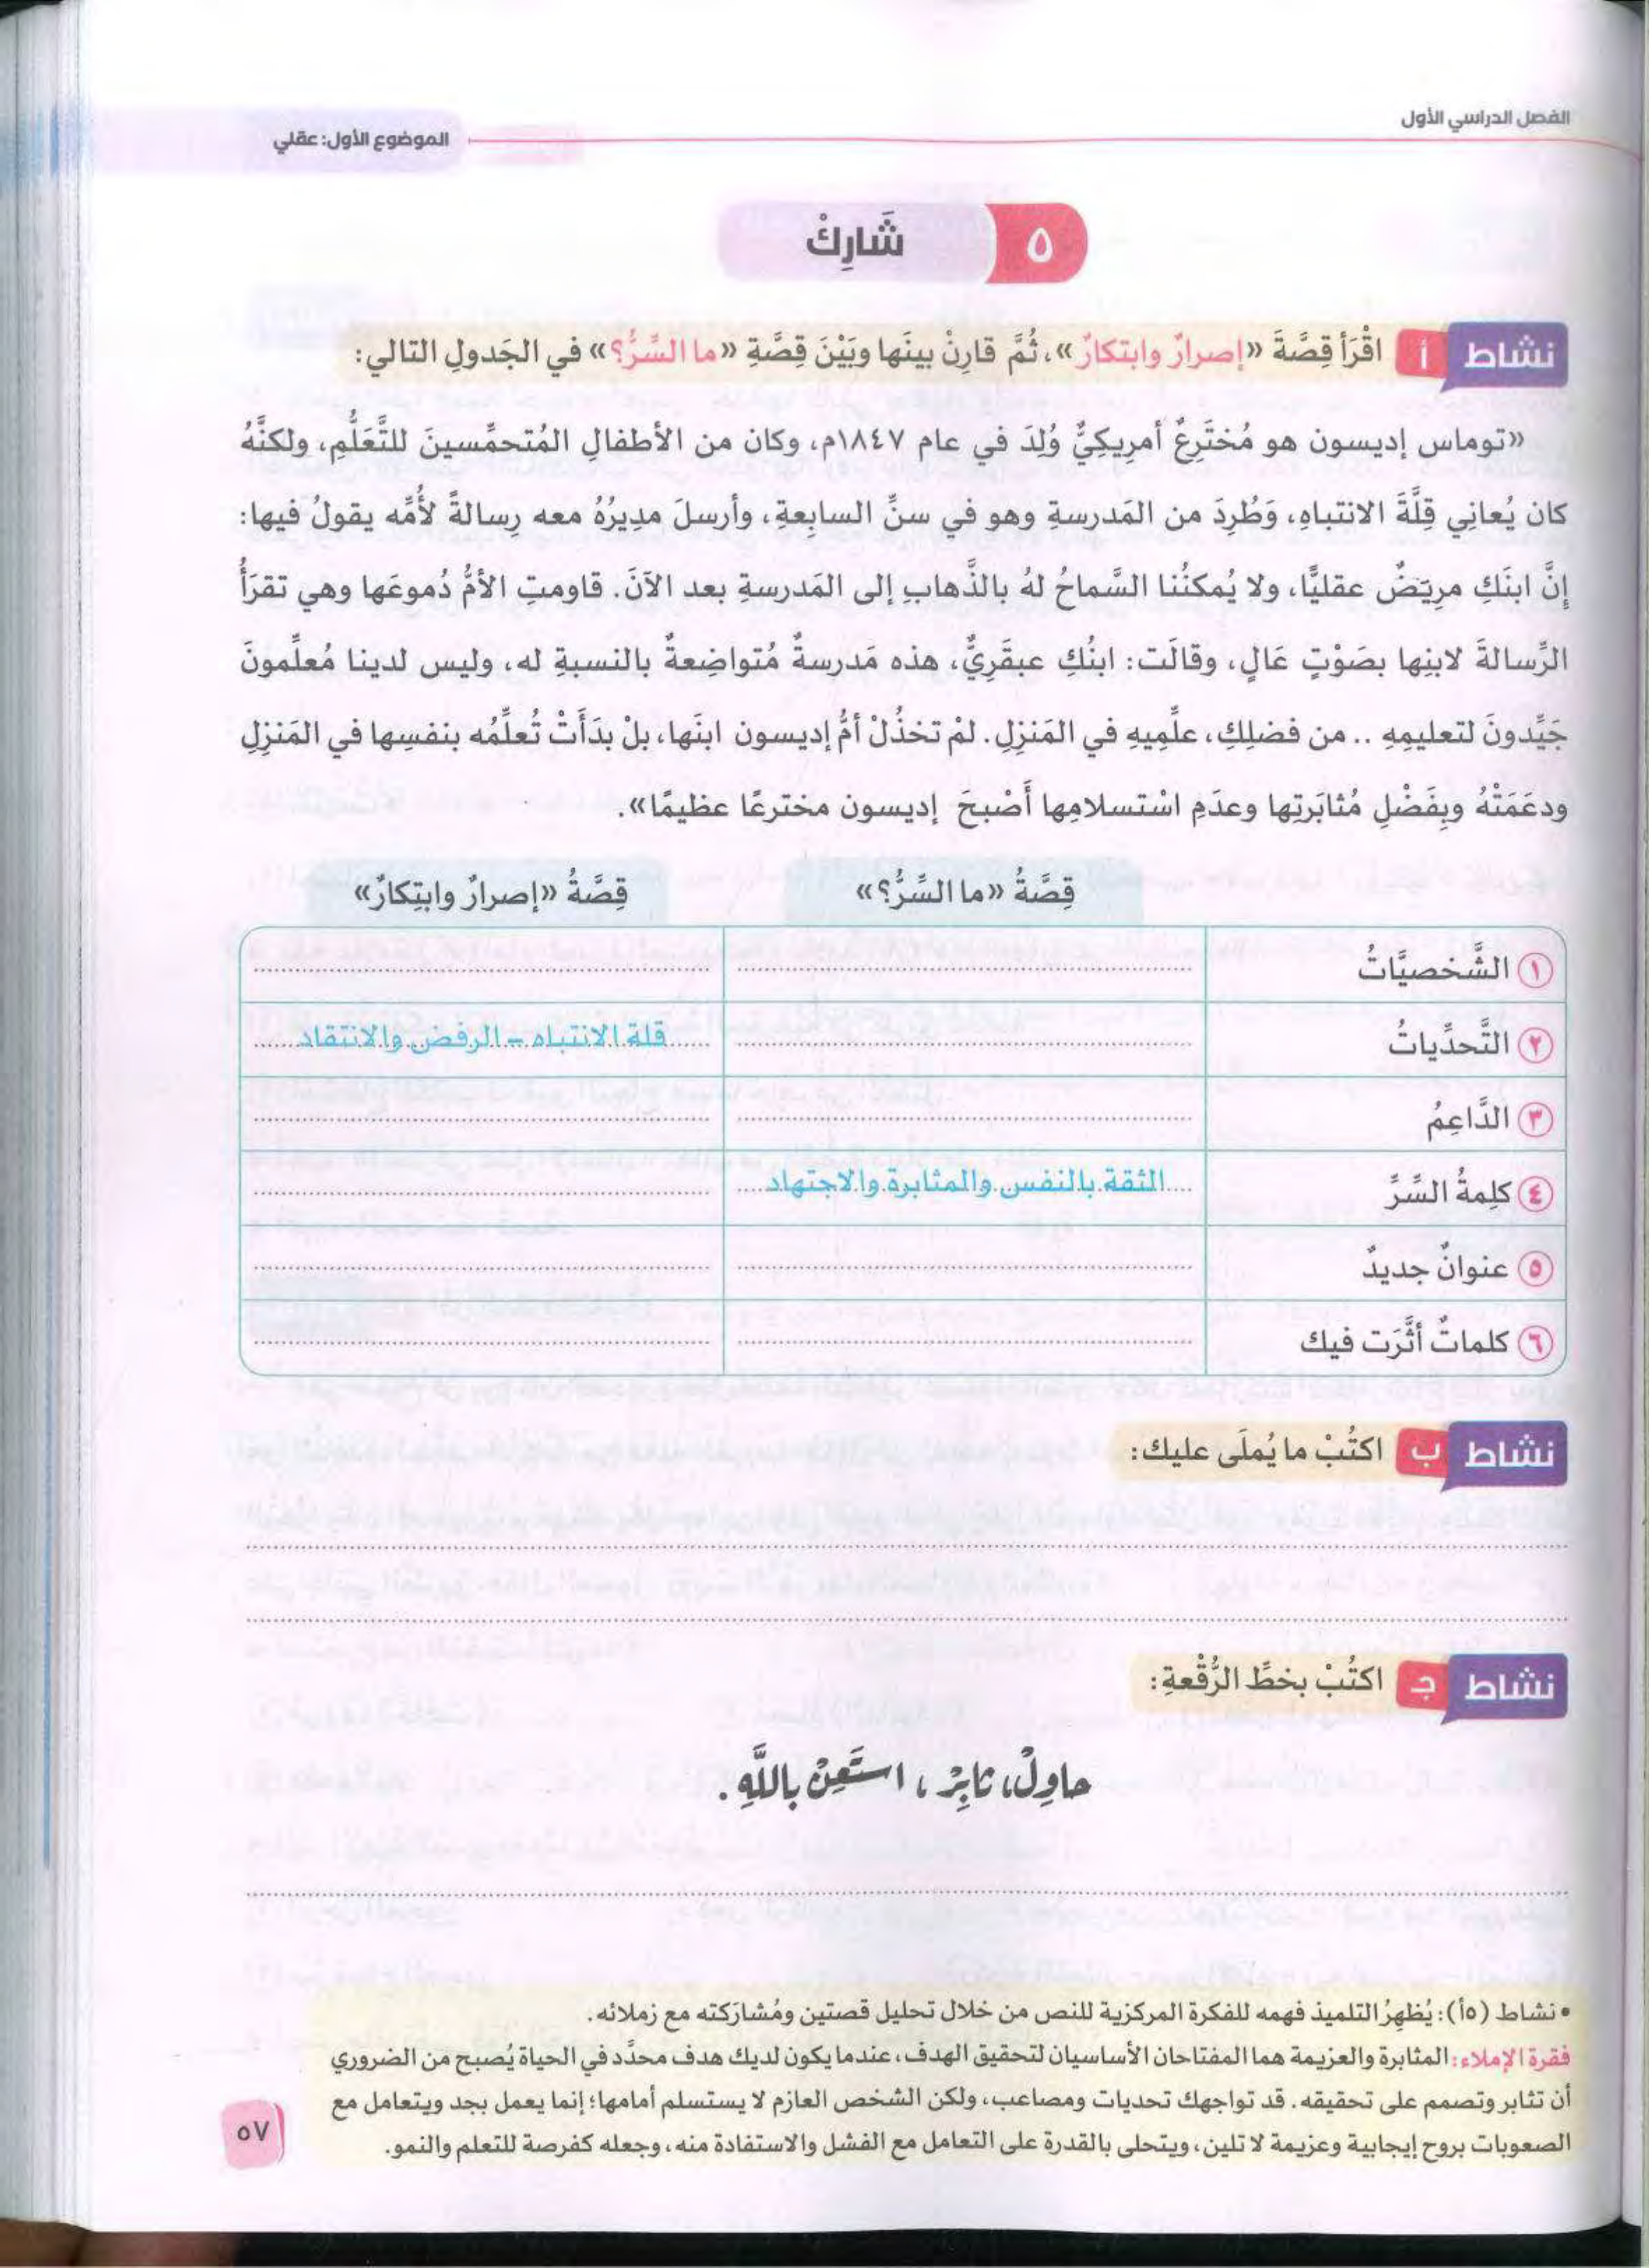 الفصل الدراسي الأول
الموضوع الأول: عقلي
٥ شَارِكْ
نشاط أ اقْرَأ قِصَّةَ «إصرارٌ وابتكارٌ»، ثُمَّ قارِنْ بينَها وبَيْنَ قِصَّةِ «ما السِّرُّ؟» في الجَدولِ التالي:
«توماس إديسون هو مُختَرِعٌ أمرِيكِيٌّ وُلِدَ في عام ١٨٤٧م، وكان من الأطفالِ المُتحمِّسينَ للتَّعَلُّمِ، ولكنَّهُ
كان يُعانِي قِلَّةَ الانتباهِ، وَطُرِدَ من المَدرسةِ وهو في سنِّ السابِعةِ، وأرسلَ مديرُهُ معه رِسالةً لأُمِّه يقولُ فيها:
إنَّ ابنَكِ مرِيَضٌ عقليًّا، ولا يُمكنُنا السَّماحُ لهُ بالذَّهابِ إلى المَدرسةِ بعد الآنَ. قاومتِ الأمُّ دُموعَها وهي تقرَأُ
الرِّسالةَ لابنِها بصَوْتٍ عَالٍ، وقالَت: ابنُكِ عبقَرِيٌّ، هذه مَدرسةٌ مُتواضِعةٌ بالنسبةِ له، وليس لدينا مُعلِّمونَ
جَيِّدونَ لتعليمِهِ .. من فضلِكِ، علِّمِيهِ في المَنزِلِ. لمْ تخذُلْ أمُّ إديسون ابنَها، بلْ بدَأَتْ تُعلِّمُه بنفسِها في المَنزِلِ
ودعَمَتْهُ وبِفَضْلِ مُثابَرتِها وعدَمِ اسْتسلامِها أَصْبحَ إديسون مخترعًا عظيمًا».
قِصَّةُ «ما السِّرُّ؟» قِصَّةُ «إصرارٌ وابتِكارٌ»
١ الشَّخصيَّاتُ
٢ التَّحدِّياتُ قلة الانتباه - الرفض والانتقاد
٣ الدَّاعِمُ
٤ كلِمةُ السِّرِّ الثقة بالنفس والمثابرة والاجتهاد
٥ عنوانٌ جديدٌ
٦ كلماتٌ أثَّرَت فيك
نشاط ب اكتُبْ ما يُملَى عليك:
نشاط جـ اكتُبْ بخطِّ الرُّقْعةِ:
حاوِلْ، ثابِرْ، استَعِنْ باللَّهِ.
• نشاط (٥أ): يُظهِرُ التلميذ فهمه للفكرة المركزية للنص من خلال تحليل قصتين ومُشارَكته مع زملائه.
فقرة الإملاء: المثابرة والعزيمة هما المفتاحان الأساسيان لتحقيق الهدف، عندما يكون لديك هدف محدَّد في الحياة يُصبح من الضروري
أن تثابر وتصمم على تحقيقه. قد تواجهك تحديات ومصاعب، ولكن الشخص العازم لا يستسلم أمامها؛ إنما يعمل بجد ويتعامل مع
الصعوبات بروح إيجابية وعزيمة لا تلين، ويتحلى بالقدرة على التعامل مع الفشل والاستفادة منه، وجعله كفرصة للتعلم والنمو.
٥٧